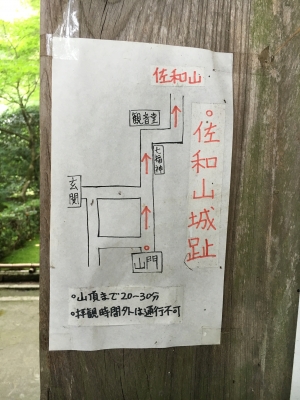 佐和山
観音堂
七福神
玄関
山門
。佐和山城趾
。山頂まで20～30分
。拝観時間外は通行不可